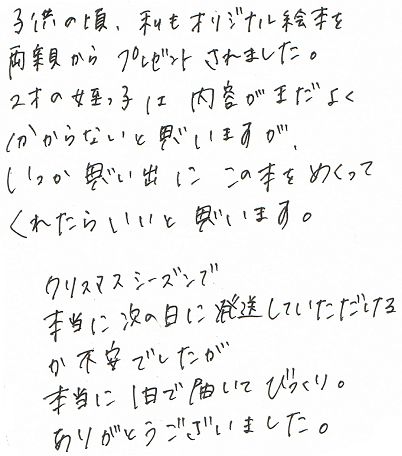 子供の頃、私もオリジナル絵本を
両親から プレゼント されました。
2才の姪っ子は 内容がまだよく
分からないと思いますが、
いつか思い出に この本をめくって
くれたらいいと 思います。
クリスマスシーズンで
本当に次の日に発送していただける
か不安でしたが
本当に1日で届いてびっくり。
ありがとうございました。